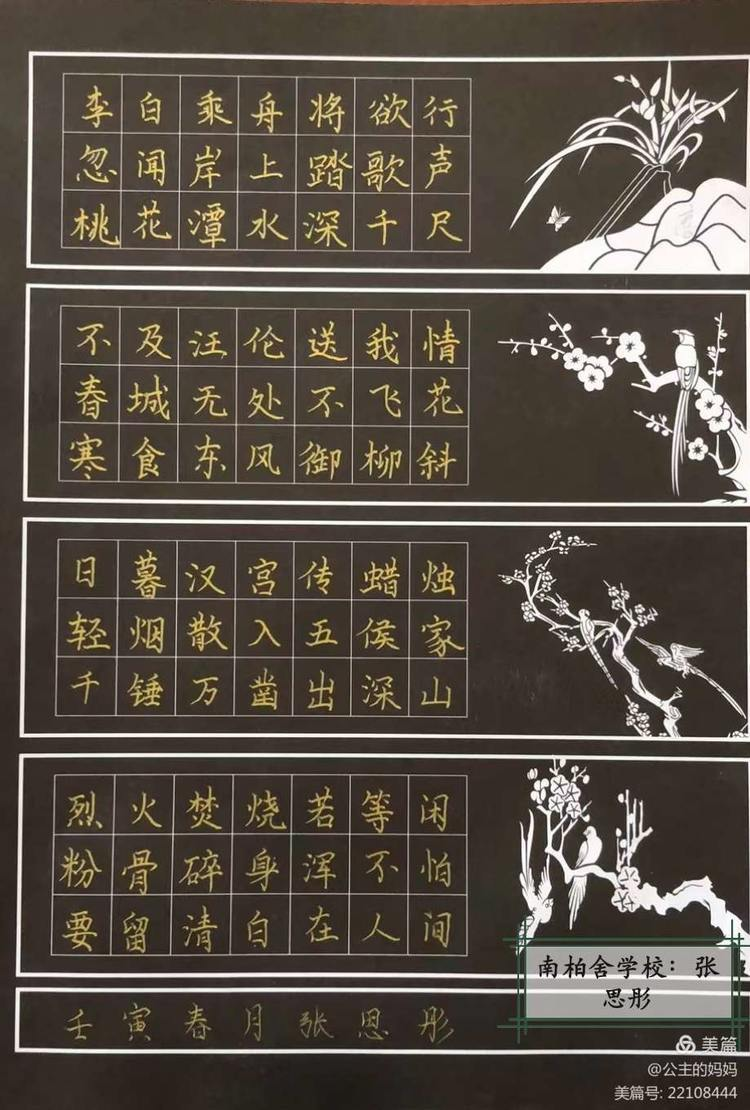 李白乘舟将欲行
忽闻岸上踏歌声
桃花潭水深千尺
不及汪伦送我情
春城无处不飞花
寒食东风御柳斜
日暮汉宫传蜡烛
轻烟散入五侯家
千锤万凿出深山
烈火焚烧若等闲
粉骨碎身浑不怕
要留清白在人间
壬寅春月张思彤
南柏舍学校：张
思彤
美篇
@公主的妈妈
美篇号: 22108444